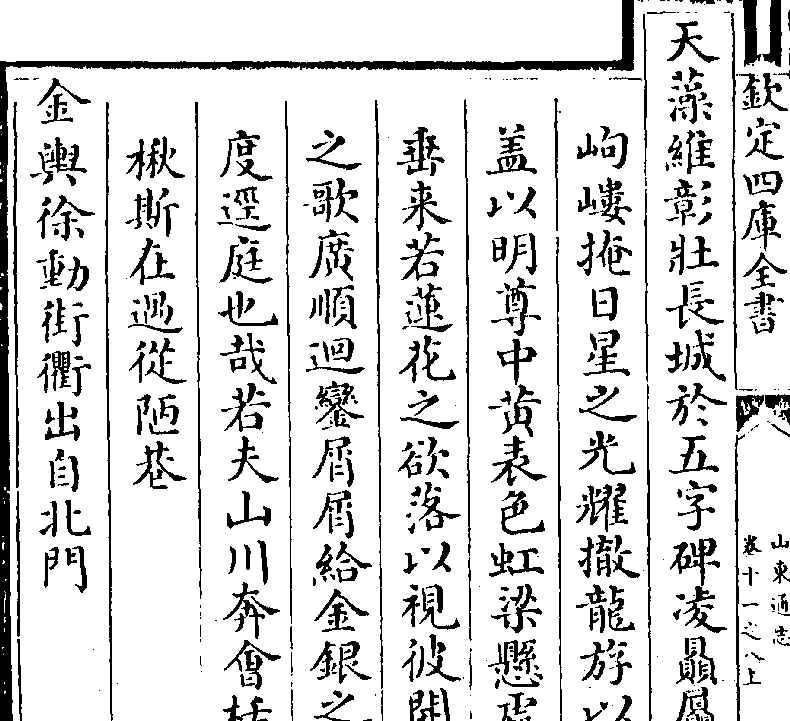 欽定四庫全書
山東通志
卷十一之八上
天藻維彰壯長城於五字碑凌贔屭
岣嶁掩日星之光耀撤龍斿以
盖以明尊中黄表色虹梁懸
垂来若蓮花之欲落以視彼開
之歌廣順迴鑾屑屑給金銀之
度逕庭也哉若夫山川奔會
楸斯在過從陋巷
金輿徐動街衢出自北門